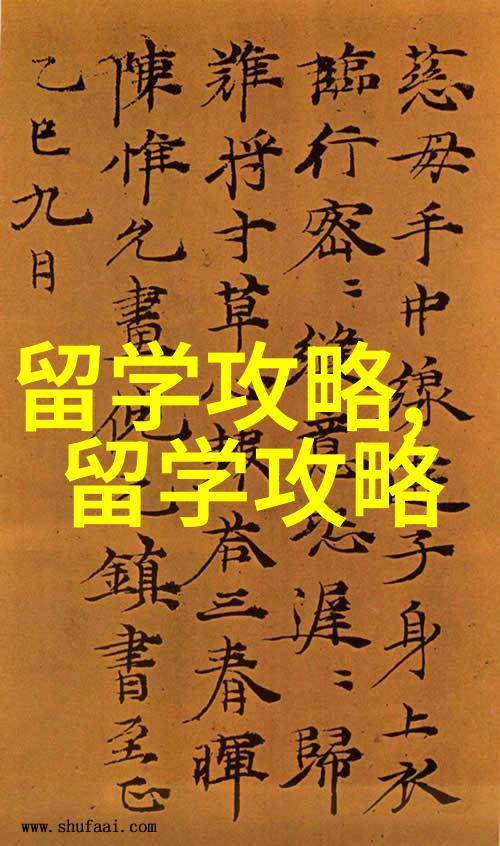 慈母手中線子身上衣
臨行密〻縫意恐遲〻歸
難將寸草心報荅三春暉
陳惟允畫倪元鎮書至正
乙巳九月
留学攻略,
留学攻略
www.shufaai.com